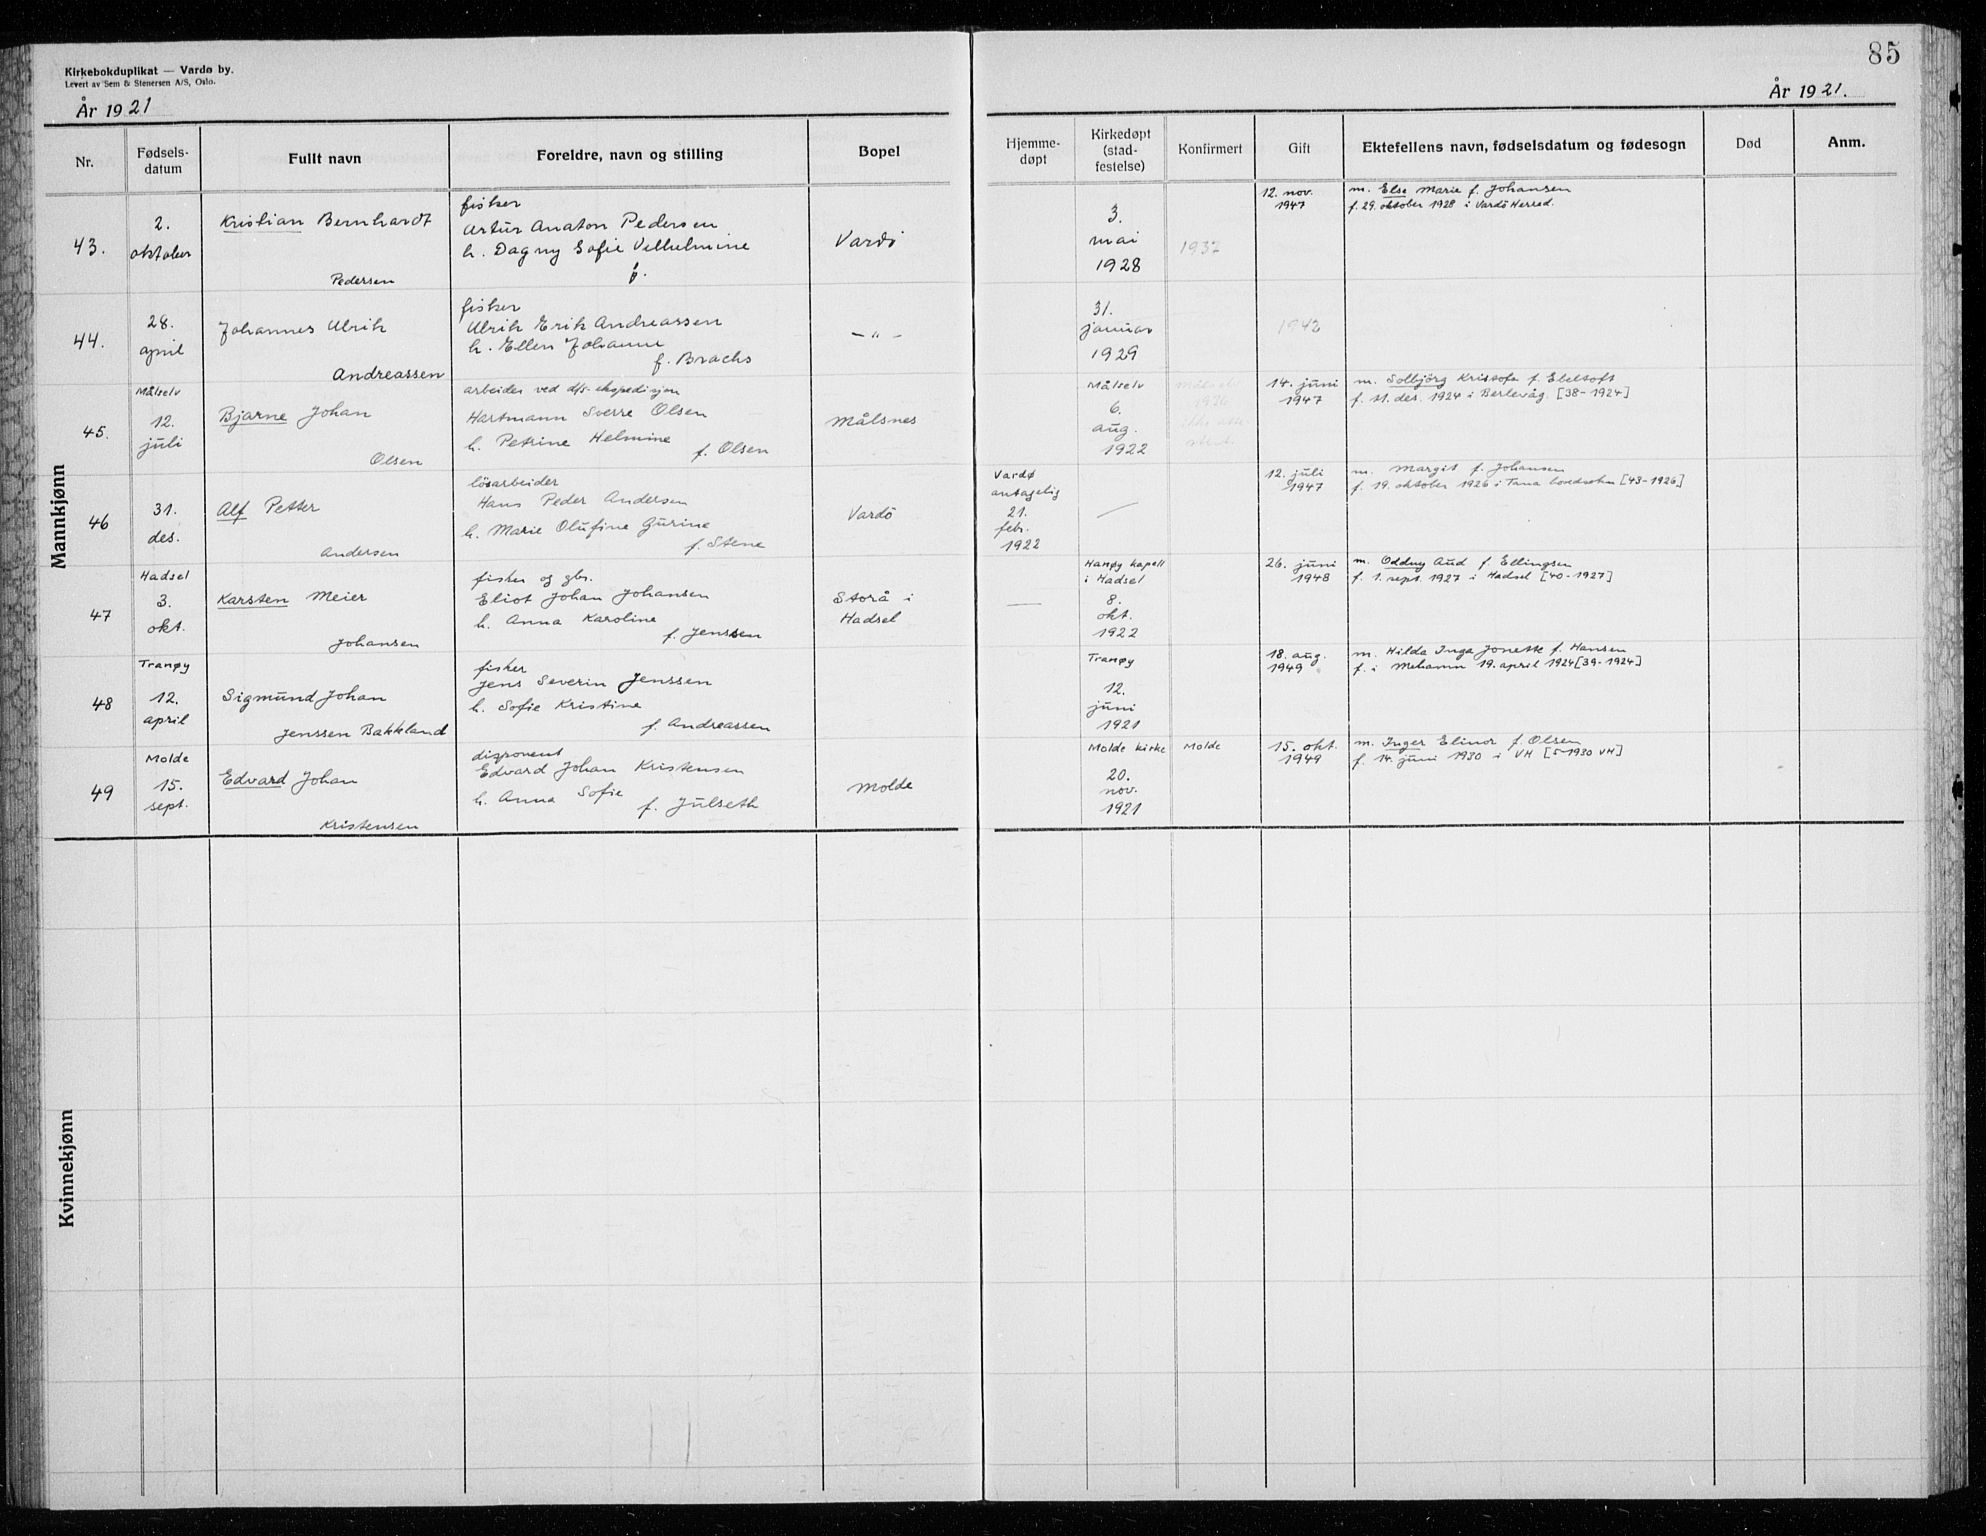 85
Kirkebokduplikat — Vardø by.
Levert av Sem & Stenersen A/S, Oslo.
År 1921
År 1921.
Nr.
Fødsels-
datum
Fullt navn
Foreldre, navn og stilling
Bopel
Hjemme-
døpt
Kirkedøpt
(stad-
festelse)
Konfirmert
Gift
Ektefellens navn, fødselsdatum og fødesogn
Død
Anm.
Mannkjønn
43.
2.
oktober
Kristian Bernhardt
Pedersen
fisker
Artur Anaton Pedersen
h. Dagny Sofie Vilhelmine
Vardö
3.
mai
1928
1937
12. nov.
1947
m. Else Marie f. Johansen
f. 29. oktober 1928 i Vardö Herred.
44.
28.
april
Johannes Ulrik
Andreassen
fisker
Ulrik Erik Andreassen
h. Ellen Johanne
f. Brochs
— „ —
31.
januar
1929
1942
45.
Målselv
12.
juli
Bjarne Johan
Olsen
arbeider ved d/s-ekspedisjon
Hartmann Sverre Olsen
h. Petrine Helmine
f. Olsen
Målsnes
Målselv
6.
aug.
1922
Målselv
1936
14. juni
1947
m. Solbjörg Kristofa f. Ebeltoft
f. 11. des. 1924 i Berlevåg. [38-1924]
46
31.
des.
Alf Petter
Andersen
lösarbeider
Hans Peder Andersen
h. Marie Olufine Gurine
f. Stene
Vardö
Vardø
antagelig
21.
febr.
1922
—
12. juli
1947
m. Margit f. Johansen
f. 19. oktober 1926 i Tana [43-1926]
47
Hadsel
3.
okt.
Karsten Meier
Johansen
fisker og gbr.
Eliot Johan Johansen
h. Anna Karoline
f. Jenssen
Storå i
Hadsel
—
Hanøy kapell
i Hadsel
8.
okt.
1922
26. juni
1948
m. Oddny Aud f. Ellingsen
f. 1. sept. 1927 i Hadsel [40-1927]
48
Tranøy
12.
april
Sigmund Johan
Jenssen Bakkland
fisker
Jens Severin Jenssen
h. Sofie Kristine
f. Andreassen
Tranøy
12.
juni
1921
18. aug.
1949
m. Hilda Inga Jonette f. Hansen
f. i Mehamn 19. april 1924 [39-1924]
49
Molde
15.
sept.
Edvard Johan
Kristensen
disponent
Edvard Johan Kristensen
h. Anna Sofie
f. Julseth
Molde
Molde kirke
20.
nov.
1921
Molde
15. okt.
1949
m. Inger Elinor f. Olsen
f. 14. juni 1930 i VH [5-1930 VH]
Kvinnekjønn